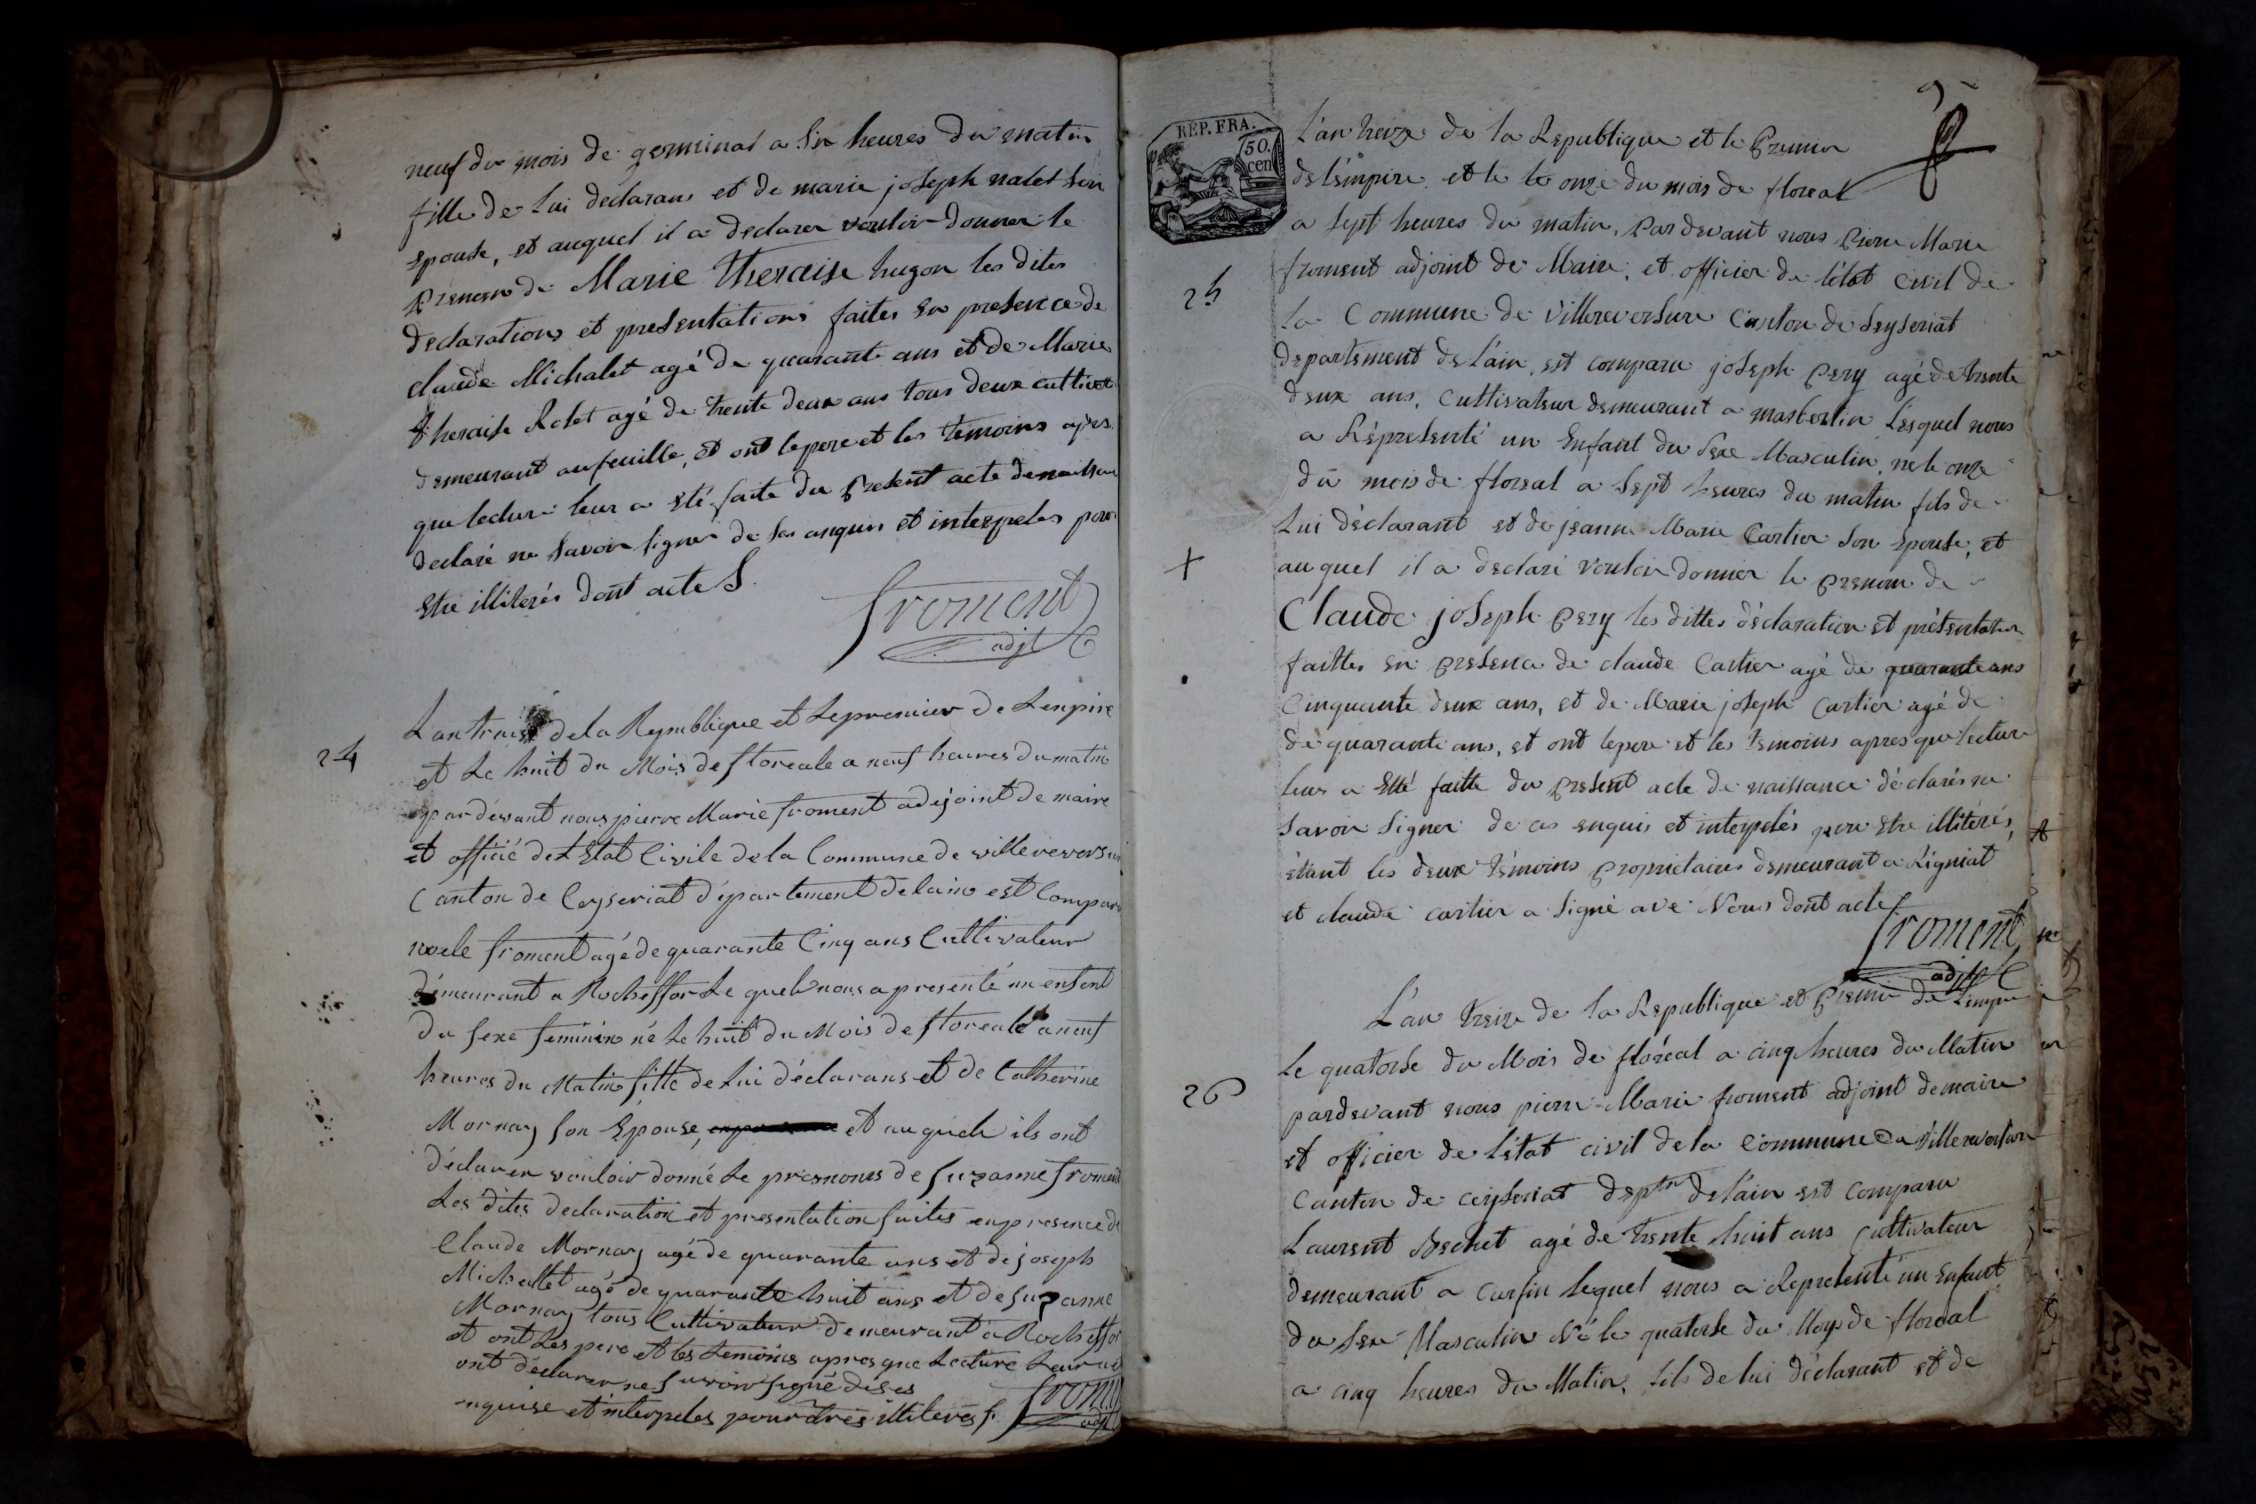 neuf du mois de germinal a six heures du matin
fille de Lui déclarans et de marie joseph nalet son
epouse, et auquel il a declarer vouloir donner le
prenom de Marie Theraise hugon les dites
declarations et presentations faites en presence de
claude Michalet agé de quarante ans et de Marie
Theraise Rolet agé de trente deux ans tous deux cultivat
demeurant au feuille, et ont le pere et les temoins apres
que lecture leur a eté faite du present acte de naissan
declaré ne savoir signer de les anquis et interpeles pour
etre illiterés dont acte
froment
adjt
24
Lan traise de la Republique et Lepremier de Lenpire
et Le huit du Mois de floreale a neuf heures du matin
par dévant nous pierre Marie froment adejoint de maire
et officié det Etat Civile de la Commune de villerevers
Canton de Ceyseriat département delain est Compar
noele froment agé de quarante Cinq ans Cultivateur
démeurant a Rocheffor Le quel nous a presenté un enfent
du sexe feminin né Le huit du Mois de floreale a neuf
heures du Matin fille de Lui déclarans et de Catherine
Mornay son Epouse, et auquele ils ont
déclarer vouloir donné Le presnoms de Suzanne froment
Les dites declaration et presentation faites en presence de
Claude Mornay agé de quarante ans et de joseph
Michallet agé de quarante huit ans et de Suzanne
Mornay tous Cultivateur demeurant a Rocheffor
et ont Les pere et les temoins apres que Lecture Leur a
ont déclarer ne savoir signé de ses
enquise et interpeles pour etres illiterés
froment
adjt
REP. FRA.
50.
cen
L'an treize de la Republique et le Premier
de L'empire et le le onze du mois de floreal
a sept heures du matin, Par devant nous Pierre Marie
froment adjoint de Maire, et officier de l'état Civil de
25
La Commune de Villereversure Canton de Seyseriat
departement de L'ain, est comparu joseph Pery agé de trente
deux ans, Cultivateur demeurant a masbertin Lesquel nous
a Répresenté un Enfant du Sexe Masculin, ne le onze
du mois de floreal a sept heures du matin fils de
Lui déclarant et de jeanne Marie Cartier son Epouse, et
auquel il a declaré vouloir donner le Prenom de
Claude joseph Pery les dittes déclaration et présentation
faittes en presence de claude Cartier agé de quarante ans
Cinquante deux ans, et de Marie joseph Cartier agé de
de quarante ans, et ont le pere et les temoins apres que lecture
leur a Eté faitte du present acte de naissance déclarés ne
savoir signer de ce enquis et interpelés pour Etre illitérés,
étant les deux témoins Proprietaires demeurant a Ligniat
et claude cartier a signé ave Nous dont acte
froment
adjt
L'an treize de la Republique et Premier de L'empire
Le quatorse du Mois de floréal a cinq heures du Matin
26
pardevant nous pierre Marie froment adjoint de maire
et officier de L'état civil de la Commune de Villereversure
Canton de ceyseriat deptm de L'ain est Comparu
Laurent Bechet agé de trente huit ans Cultivateur
demeurant a Curfin lequel nous a Representé un Enfant
du sexe Masculin Né le quatorse du Moy de floreal
a cinq heures du Matin, fils de lui déclarant et de